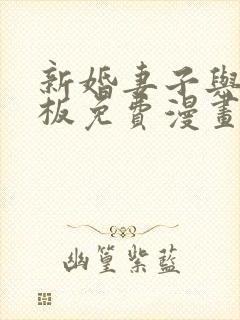 新婚妻子與
板免費漫畫
幽篁紫藍